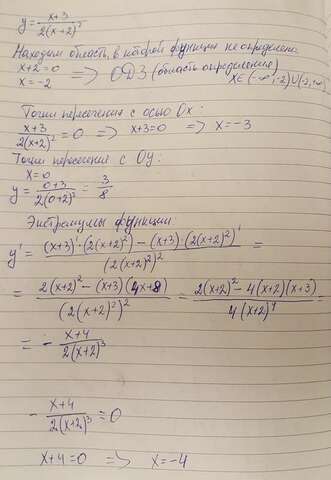 y = x+3 / 2(x+2)²
Находим область, в которой функция не определена
x+2=0 => ОДЗ (область определения)
x=-2 x∈(-∞;-2)∪(-2;∞)
Точки пересечения с осью Ox:
x+3 / 2(x+2)² = 0 => x+3=0 => x=-3
Точки пересечения с Oy:
x=0
y = 0+3 / 2(0+2)² = 3/8
Экстремумы функции
y' = (x+3)'·(2(x+2)²) - (x+3)·(2(x+2)²)' / (2(x+2)²)² =
= 2(x+2)² - (x+3)(4x+8) / (2(x+2)²)² = 2(x+2)² - 4(x+2)(x+3) / 4(x+2)⁴ =
= - x+4 / 2(x+2)³
- x+4 / 2(x+2)³ = 0
x+4=0 => x=-4